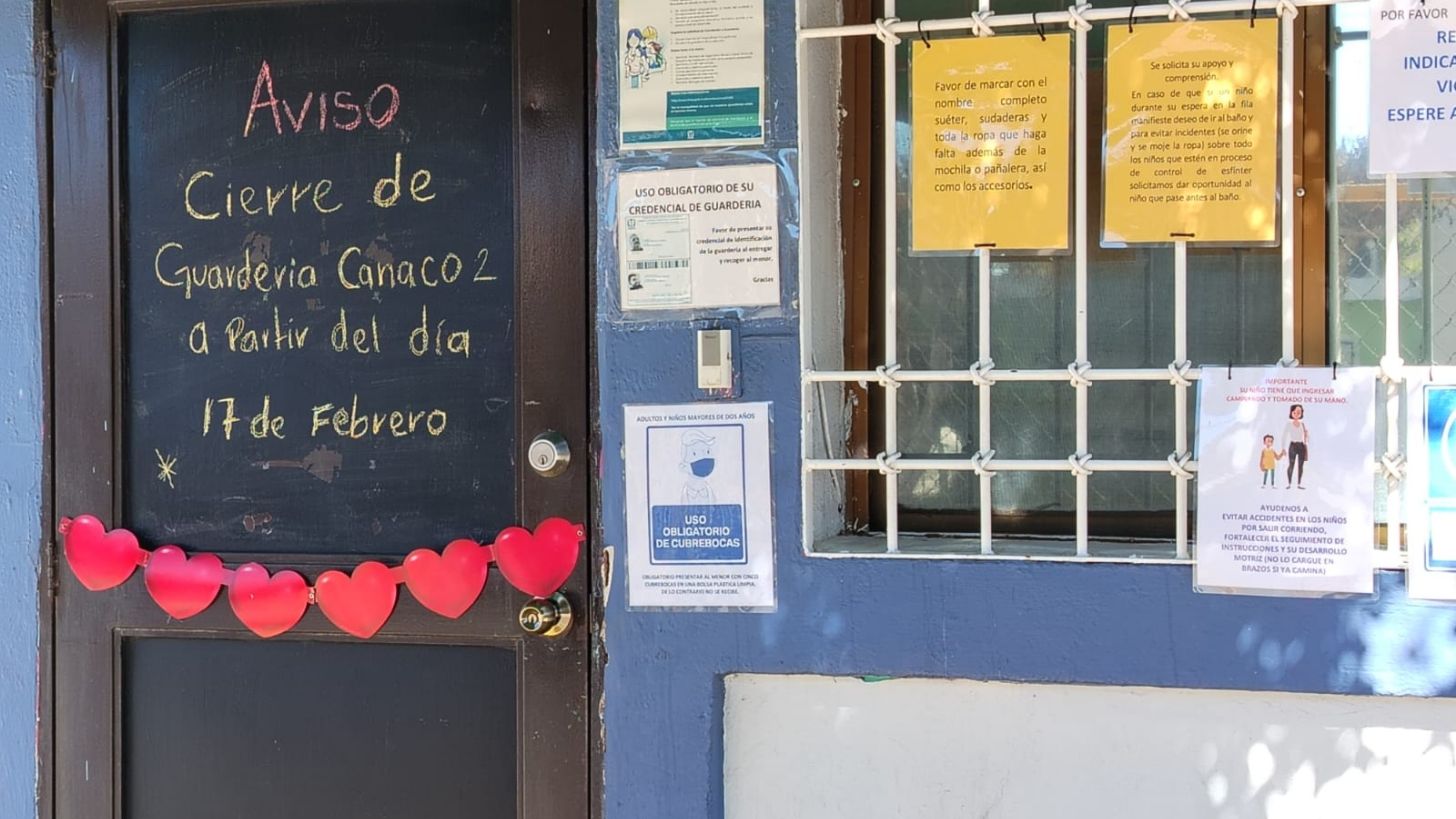 AVISO
Cierre de
Guarderia Canaco 2
a Partir del día
17 de Febrero
USO OBLIGATORIO DE SU
CREDENCIAL DE GUARDERIA
Favor de presentar su
credencial de identificación
de la guardería al entregar
y recoger al menor.
Gracias
ADULTOS Y NIÑOS MAYORES DE DOS AÑOS
USO
OBLIGATORIO
DE CUBREBOCAS
OBLIGATORIO PRESENTAR AL MENOR CON CINCO
CUBREBOCAS EN UNA BOLSA PLASTICA LIMPIA.
DE LO CONTRARIO NO SE RECIBE.
Favor de marcar con el
nombre completo
suéter, sudaderas y
toda la ropa que haga
falta además de la
mochila o pañalera, así
como los accesorios.
Se solicita su apoyo y
comprensión.
En caso de que si un niño
durante su espera en la fila
manifieste deseo de ir al baño y
para evitar incidentes (se orine
y se moje la ropa) sobre todo
los niños que estén en proceso
de control de esfínter
solicitamos dar oportunidad al
niño que pase antes al baño.
POR FAVOR
RE
INDICA
VIG
ESPERE A
IMPORTANTE
SU NIÑO TIENE QUE INGRESAR
CAMINANDO Y TOMADO DE SU MANO.
AYUDENOS A
EVITAR ACCIDENTES EN LOS NIÑOS
POR SALIR CORRIENDO,
FORTALECER EL SEGUIMIENTO DE
INSTRUCCIONES Y SU DESARROLLO
MOTRIZ (NO LO CARGUE EN
BRAZOS SI YA CAMINA)